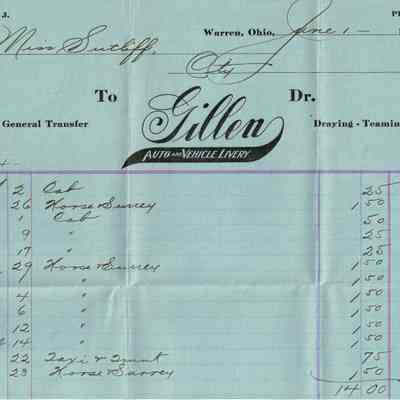 J.
Warren, Ohio, June 1-
Miss Sutliff,
City
To Gillen Dr.
General Transfer
Draying - Teamin
AUTO AND VEHICLE LIVERY
2 Cab 25
26 Horse & Surrey 1 50
1 Cab 50
9 " 25
17 " 25
29 Horse & Surrey 1 50
" 1 50
4 " 1 50
6 " 1 50
12 " 1 50
14 " 1 50
22 Taxi & Trunk 75
23 Horse Surrey 1 50
14 00